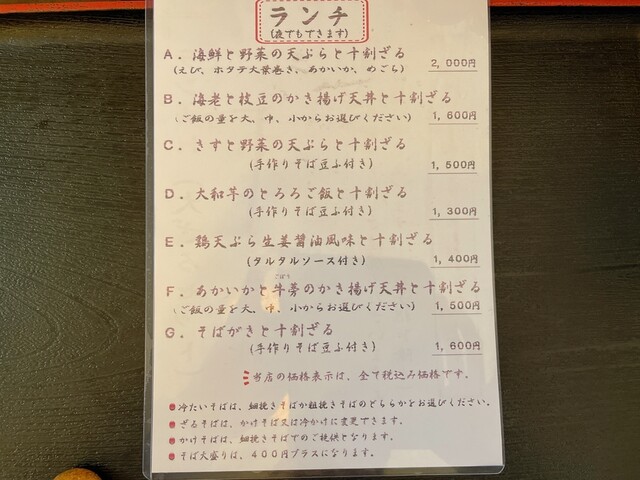 ランチ
(夜でもできます)
A. 海鮮と野菜の天ぷらと十割ざる
(えび、ホタテ大葉巻き、あかいか、めごち) 2,000円
B. 海老と枝豆のかき揚げ天丼と十割ざる
(ご飯の量を大、中、小からお選びください) 1,600円
C. きすと野菜の天ぷらと十割ざる
(手作りそば豆ふ付き) 1,500円
D. 大和芋のとろろご飯と十割ざる
(手作りそば豆ふ付き) 1,300円
E. 鶏天ぷら生姜醤油風味と十割ざる
(タルタルソース付き) 1,400円
ごぼう
F. あかいかと牛蒡のかき揚げ天丼と十割ざる
(ご飯の量を大、中、小からお選びください) 1,500円
G. そばがきと十割ざる
(手作りそば豆ふ付き) 1,600円
当店の価格表示は、全て税込み価格です。
●冷たいそばは、細挽きそばか粗挽きそばのどちらかをお選びください。
●ざるそばは、かけそば又は冷かけに変更できます。
●かけそばは、細挽きそばでのご提供となります。
●そば大盛りは、400円プラスになります。